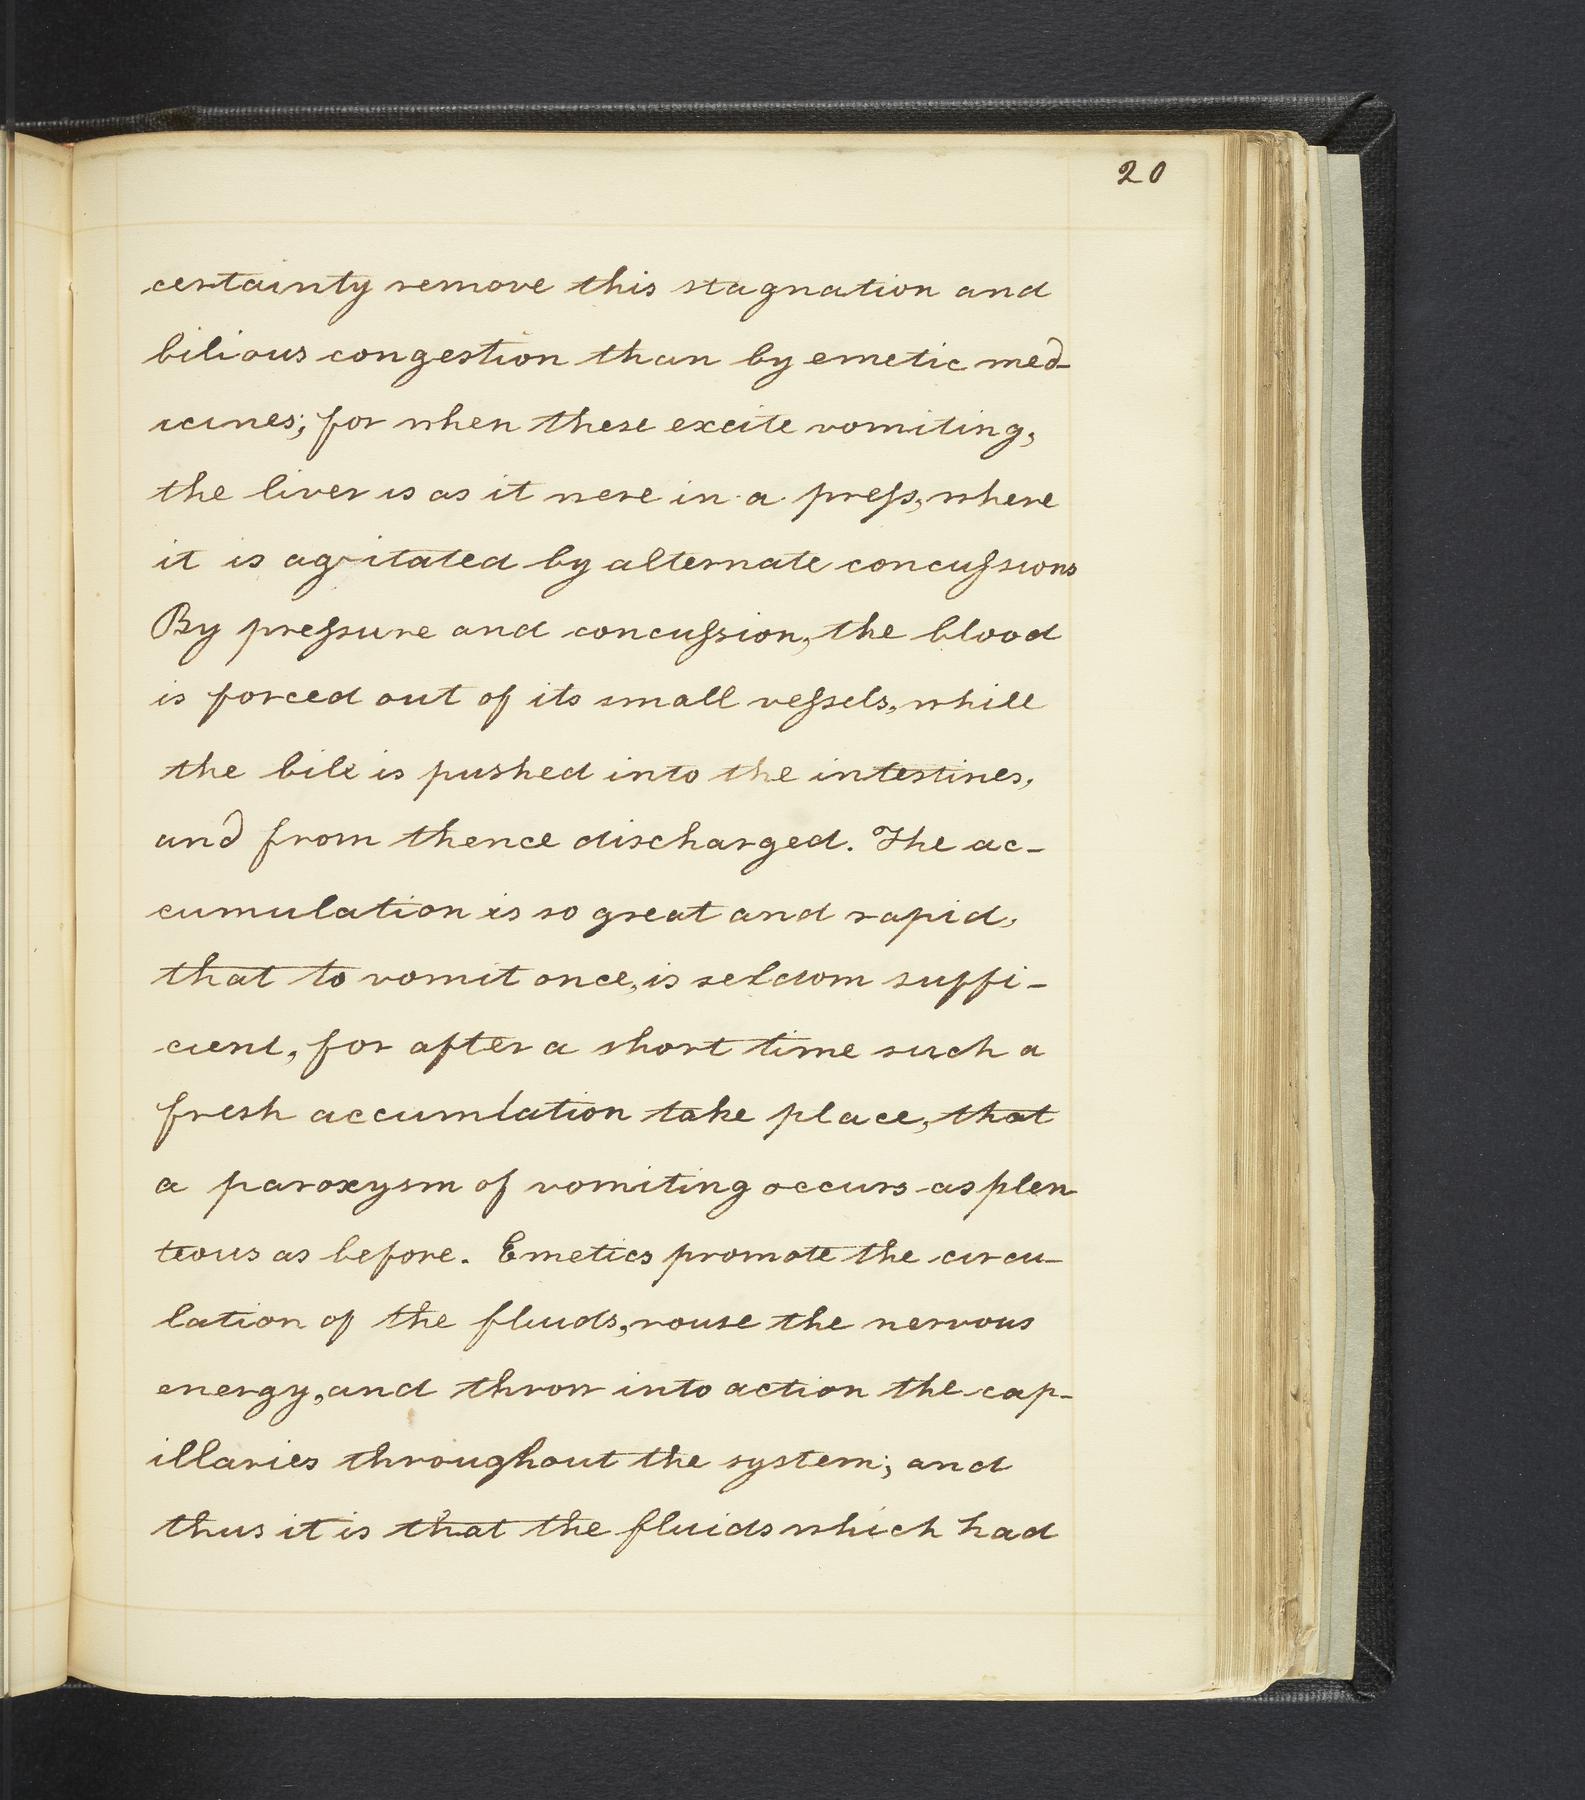 20
certainty remove this stagnation and
bilious congestion than by emetic med-
icines; for when these excite vomiting,
the liver is as it were in a press, where
it is agitated by alternate concussions
By pressure and concussion, the blood
is forced out of its small vessels, while
the bile is pushed into the intestines,
and from thence discharged. The ac-
cumulation is so great and rapid,
that to vomit once, is seldom suffi-
cient, for after a short time such a
fresh accumlation take place, that
a paroxysm of vomiting occurs as plen
teous as before. Emetics promote the circu-
lation of the fluids, rouse the nervous
energy, and throw into action the cap-
illaries throughout the system; and
thus it is that the fluids which had